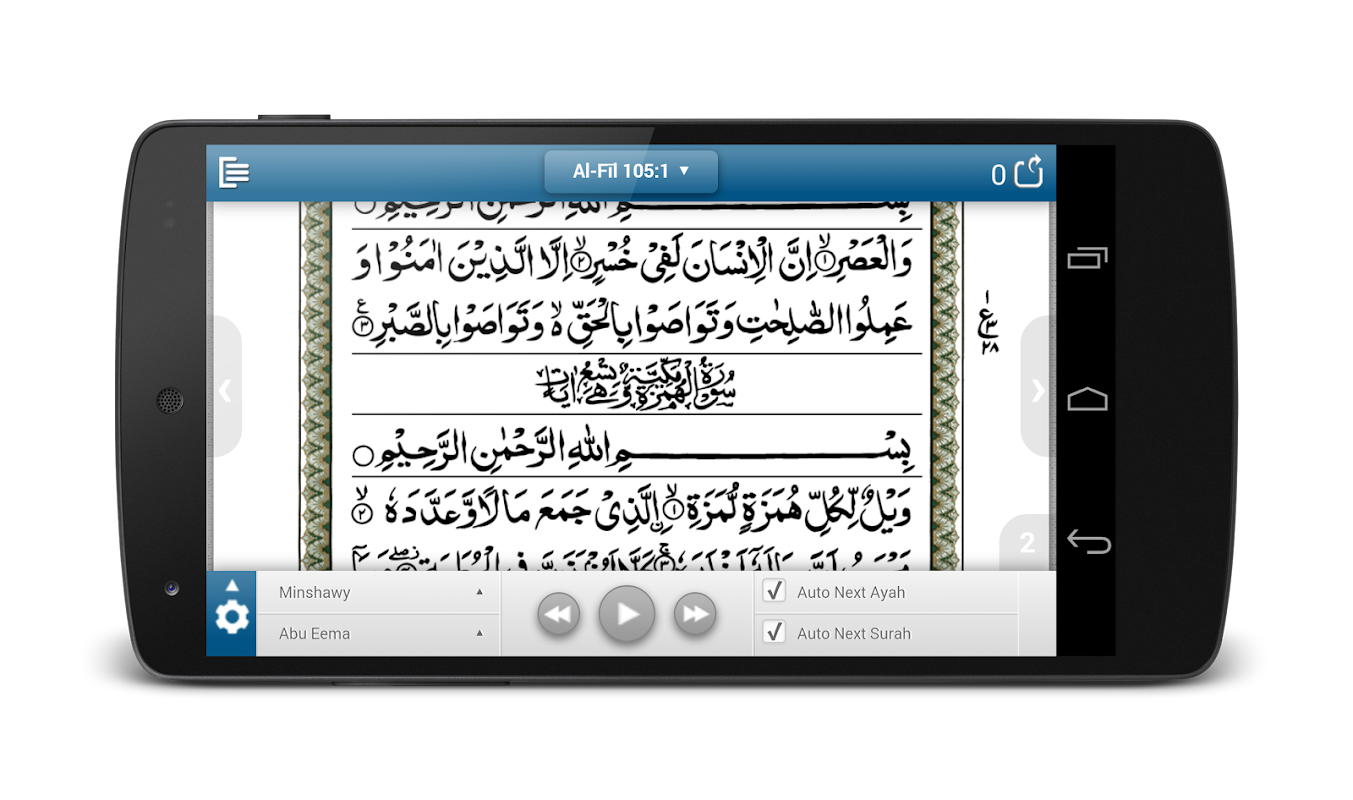 Al-Fīl 105:1 ▼
0
بِسْمِ اللهِ الرَّحْمٰنِ الرَّحِيْمِ
وَالْعَصْرِۙ۝۱ اِنَّ الْاِنْسَانَ لَفِيْ خُسْرٍۙ۝۲ اِلَّا الَّذِيْنَ اٰمَنُوْا وَ
عَمِلُوا الصّٰلِحٰتِ وَتَوَاصَوْا بِالْحَقِّ ۙ وَتَوَاصَوْا بِالصَّبْرِ۝۳ ع
ع
۲۸
سُوْرَةُ الْهُمَزَةِ مَكِّيَّةٌ وَّهِيَ تِسْعُ اٰيَاتٍ
بِسْمِ اللهِ الرَّحْمٰنِ الرَّحِيْمِ
وَيْلٌ لِّكُلِّ هُمَزَةٍ لُّمَزَةِۙ۝۱ اِلَّذِيْ جَمَعَ مَالًا وَّعَدَّدَهٗ ۙ۝۲
2
Minshawy
Abu Eema
Auto Next Ayah
Auto Next Surah